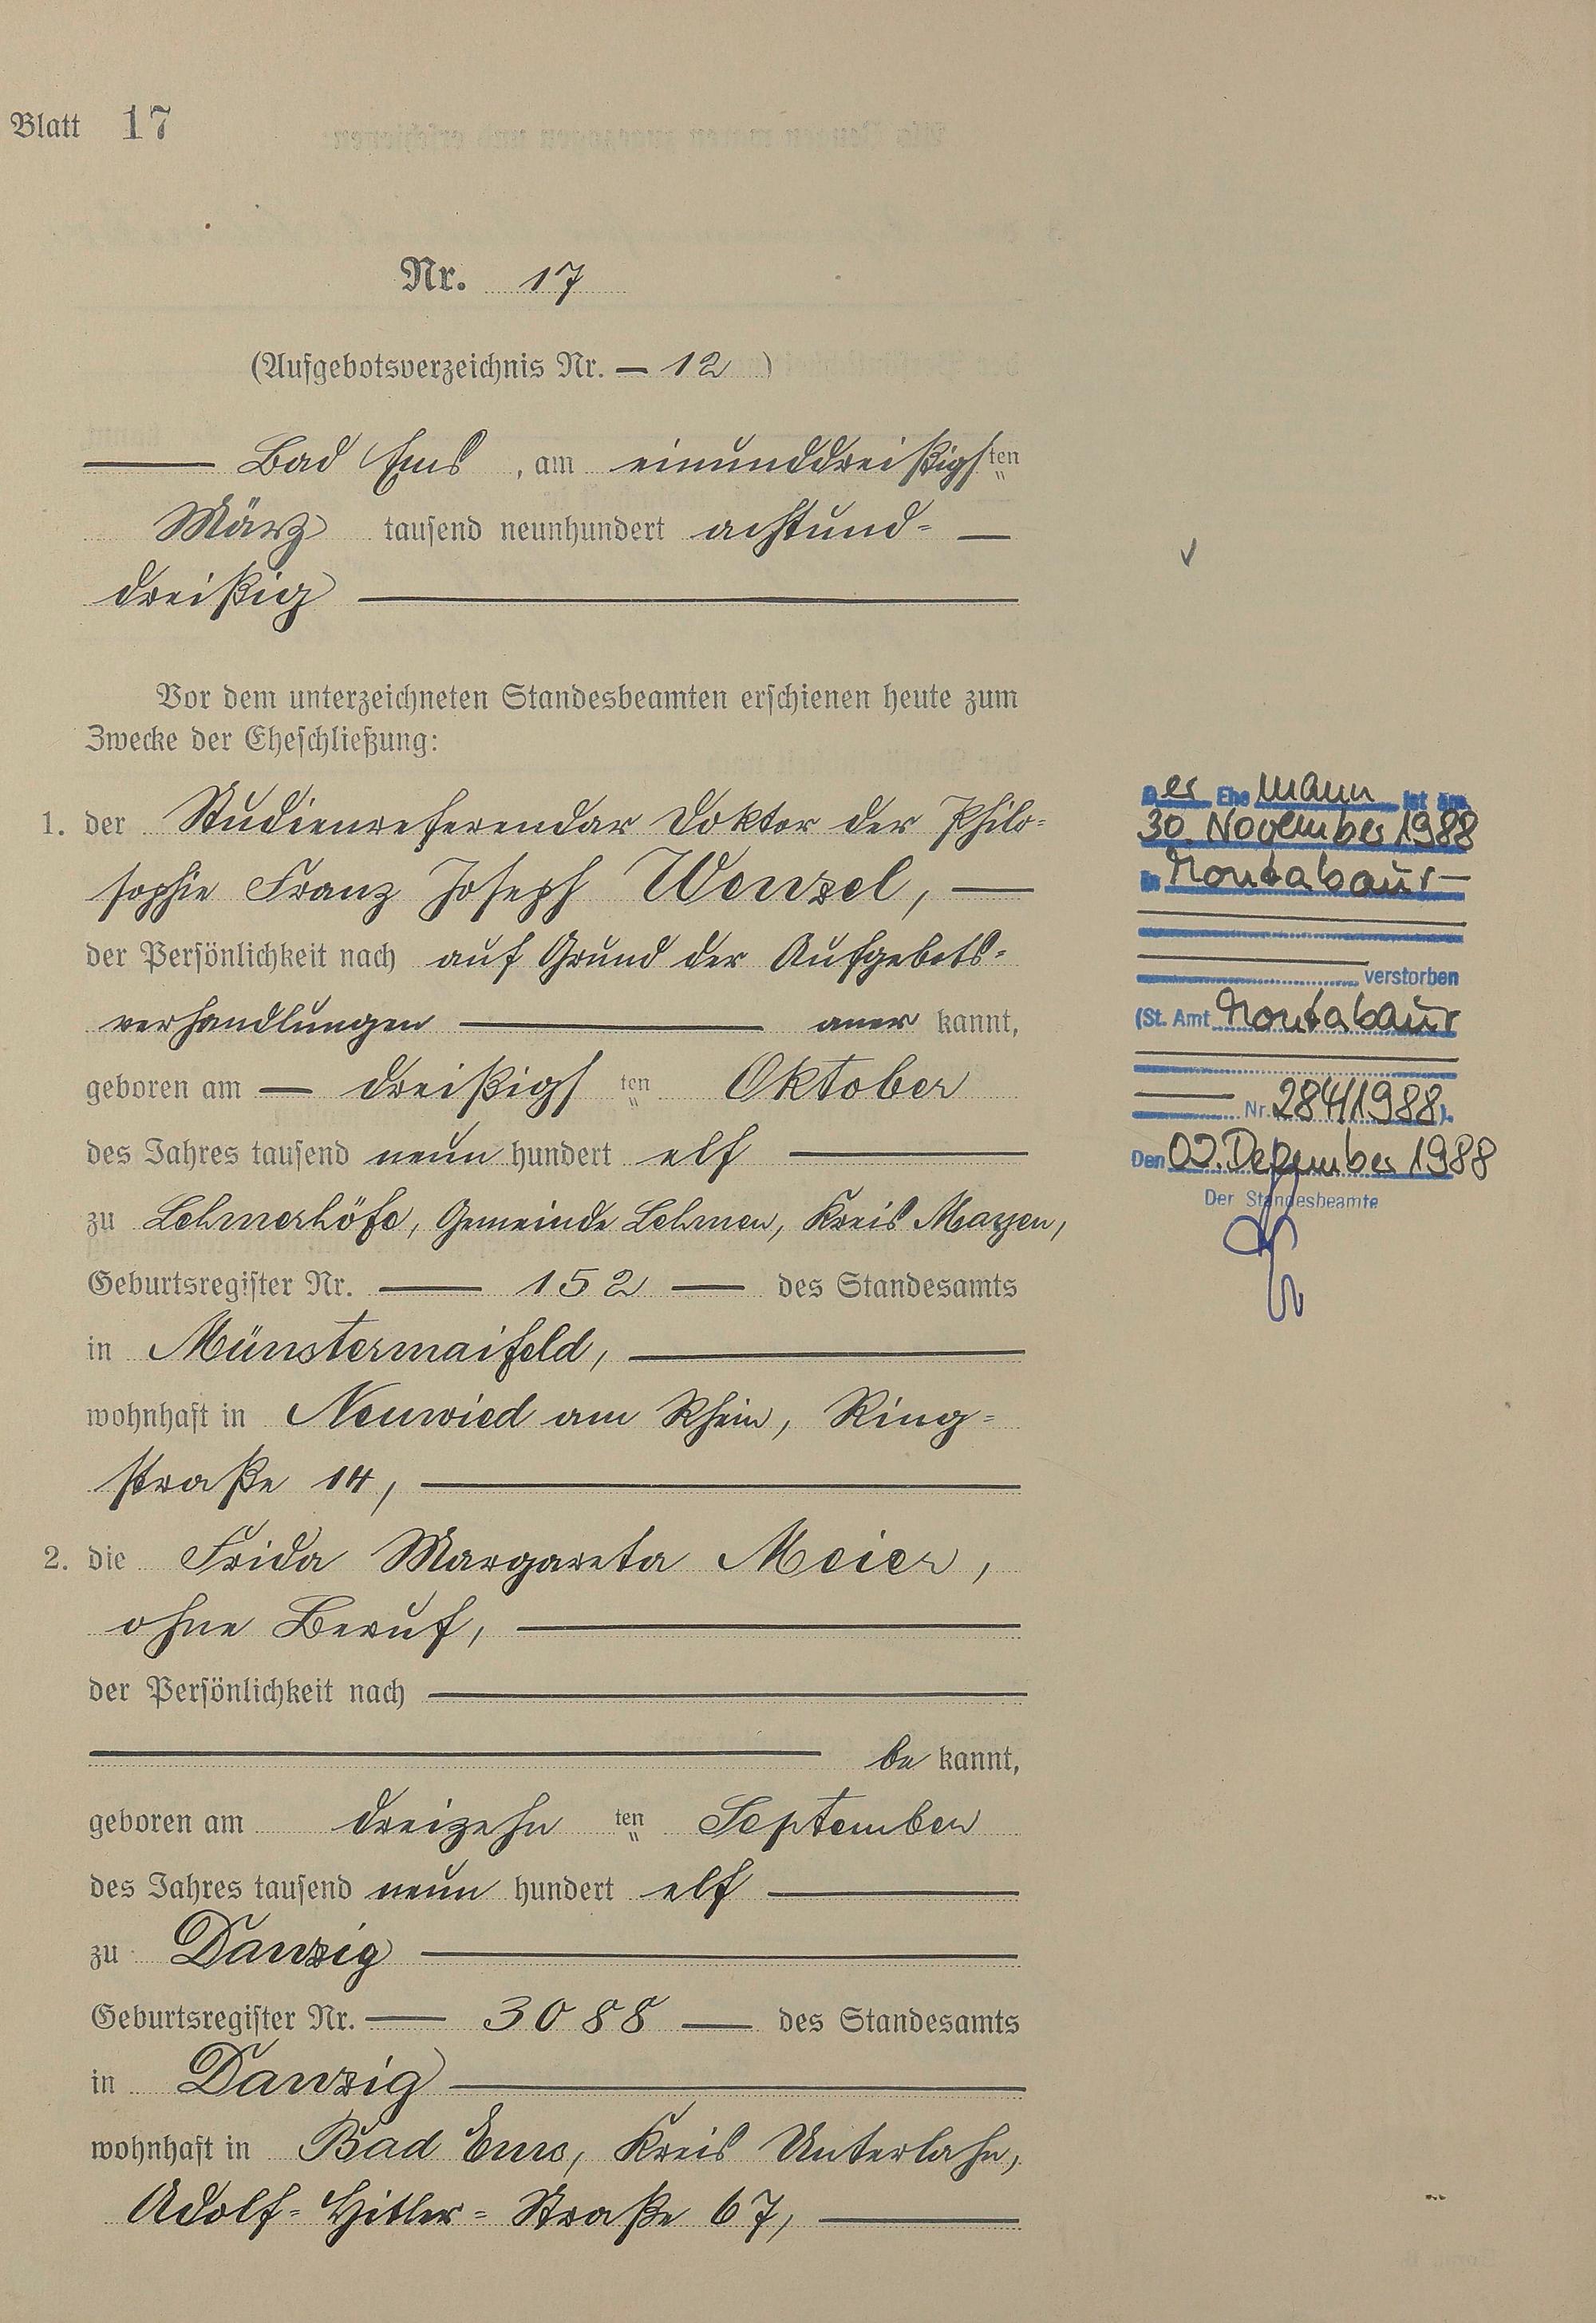 Blatt 17
Nr. 17
(Aufgebotsverzeichnis Nr. — 12 )
— Bad Ems , am einunddreißigsten
März tausend neunhundert achtund- —
dreißig —
Vor dem unterzeichneten Standesbeamten erschienen heute zum
Zwecke der Eheschließung:
1. der Studienreferendar Doktor der Philo-
sophie Franz Joseph Wenzel, —
der Persönlichkeit nach auf Grund der Aufgebots-
verhandlungen — aner kannt,
geboren am — dreißigsten Oktober
des Jahres tausend neun hundert elf —
zu Lehmerhöfe, Gemeinde Lehmen, Kreis Mayen,
Geburtsregister Nr. — 152 — des Standesamts
in Münstermaifeld, —
wohnhaft in Neuwied am Rhein, Ring-
straße 14, —
2. die Frida Margareta Meier,
ohne Beruf, —
der Persönlichkeit nach —
— be kannt,
geboren am dreizehnten September
des Jahres tausend neun hundert elf —
zu Danzig —
Geburtsregister Nr. — 3088 — des Standesamts
in Danzig —
wohnhaft in Bad Ems, Kreis Unterlahn,
Adolf-Hitler-Straße 67, —
Der Ehemann ist am
30. November 1988
in Montabaur —
verstorben
(St. Amt Montabaur
Nr. 284/1988).
Den 09. Dezember 1988
Der Standesbeamte